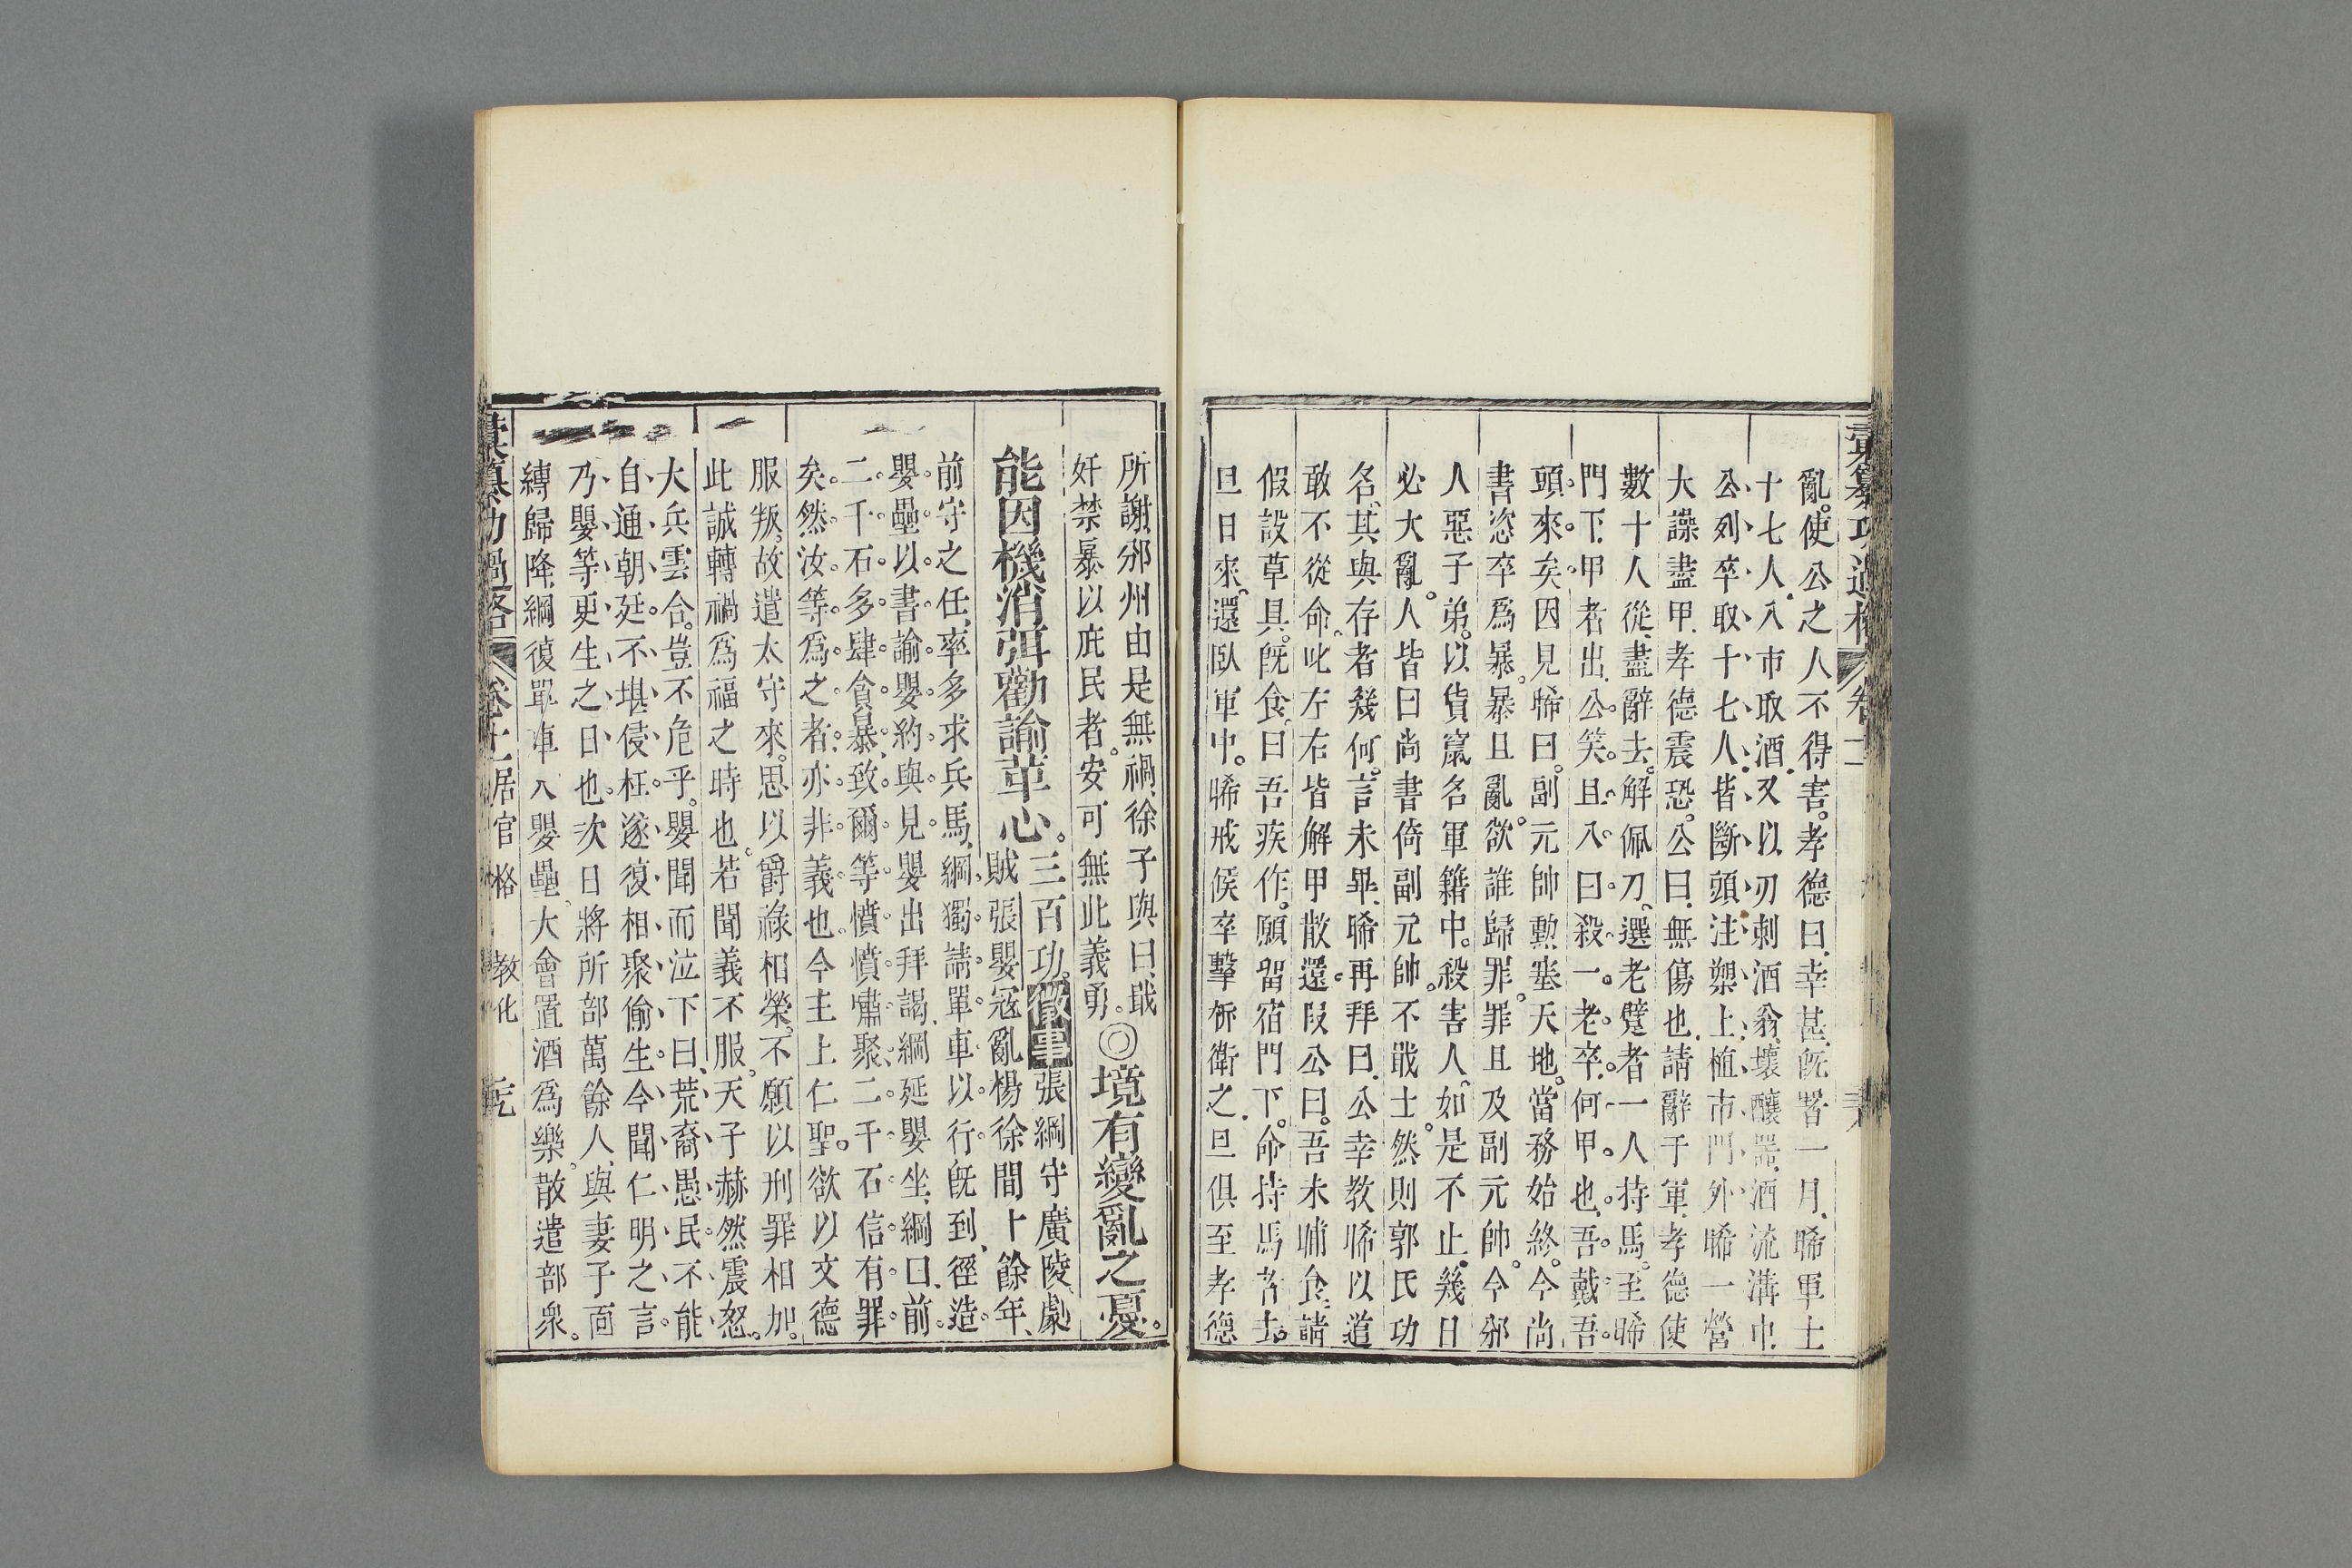 彙纂功過格 卷十二
亂。使公之人不得害。孝德曰、幸甚、旣署一月、晞軍士
十七人、入市取酒、又以刃刺酒翁、壞釀器、酒流溝中、
公列卒取十七人、皆斷頭注槊上、植市門外、晞一營
大譟盡甲、孝德震恐。公曰、無傷也、請辭于軍、孝德使
數十人從、盡辭去。解佩刀、選老躄者一人持馬、至晞
門下、甲者出、公笑且入曰、殺一老卒、何甲也、吾戴吾
頭來矣、因見晞曰。副元帥勳塞天地、當務始終。今尚
書恣卒爲暴。暴且亂。欲誰歸罪。罪且及副元帥。今邠
人惡子弟。以貨竄名軍籍中。殺害人。如是不止。幾日
必大亂。人皆曰尚書倚副元帥。不戢士。然則郭氏功
名、其與存者幾何。言未畢、晞再拜曰、公幸教晞以道
敢不從命。叱左右皆解甲散還。段公曰。吾未晡食、請
假設草具。旣食。曰吾疾作。願留宿門下。命持馬者去。
旦日來、還臥軍中。晞戒候卒擊柝衛之、旦俱至孝德
所謝、邠州由是無禍、徐子與曰、戢
奸禁暴以庇民者。安可無此義勇。◎境有變亂之憂。
能因機消弭勸諭革心。三百功。徵事張綱守廣陵、劇
賊張嬰寇亂楊徐間十餘年、
前守之任、率多求兵馬、綱獨請單車以行、旣到、徑造
嬰壘、以書諭嬰、約與見、嬰出拜謁、綱延嬰坐、綱曰、前
二千石多肆貪暴、致爾等憤憤嘯聚、二千石信有罪
矣、然汝等爲之者、亦非義也、今主上仁聖。欲以文德
服叛、故遣太守來。思以爵祿相榮。不願以刑罪相加。
此誠轉禍爲福之時也。若聞義不服。天子赫然震怒。
大兵雲合。豈不危乎。嬰聞而泣下曰、荒裔愚民、不能
自通朝廷、不堪侵枉、遂復相聚偷生、今聞仁明之言、
乃嬰等更生之日也、次日將所部萬餘人、與妻子面
縛歸降、綱復單車入嬰壘、大會置酒爲樂。散遣部衆。
彙纂功過格 卷十二居官格 教化